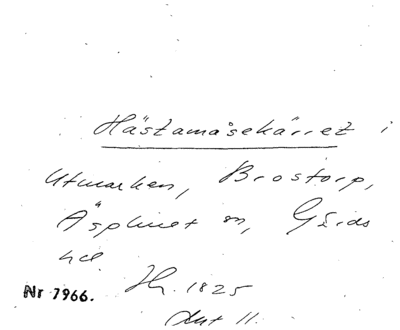 Hästamåsekärret i
Utmarken, Brostorp,
Äsphult sn, Gärds
hd
Nr 7966.
Hh. 1825
Akt 11.